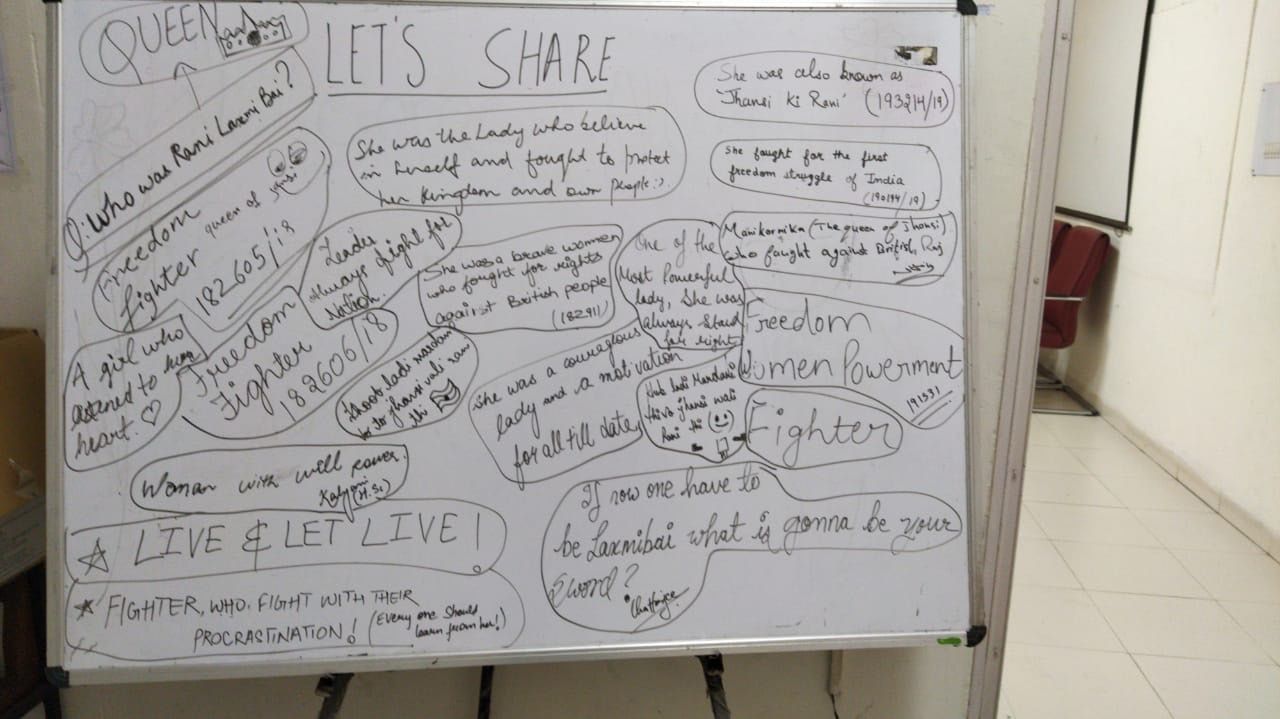 QUEEN
LET'S SHARE
Q: Who was Rani Laxmi Bai?
She was also known as
'Jhansi Ki Rani' (193214/19)
She was the Lady who believe
in herself and fought to protect
her Kingdom and own people :).
She fought for the first
freedom struggle of India
(190194/19)
Freedom
fighter queen of
182605/18
Leader
Always fight for
Nation.
She was a brave women
who fought for rights
against British people
(182911)
One of the
Most Powerful
lady, She was
always stand
for right
Manikarnika (The queen of Jhansi)
who faught against British, Raj
A girl who
listened to
heart. ♡
Freedom
Fighter
182606/18
Khoob ladi mardani
wo to jhansi vali rani
thi
She was a couragious
lady and a motivation
for all till date,
Khub ladi Mardani
thi vo jhansi wali
Rani thi
Freedom
Women Powerment
191531
Fighter
Woman with will power.
Kalyani
(H.S.)
☆ LIVE & LET LIVE!
If now one have to
be Laxmibai what is gonna be your
Sword?
☆ FIGHTER, WHO. FIGHT WITH THEIR
PROCRASTINATION! (Every one should
learn from her!)